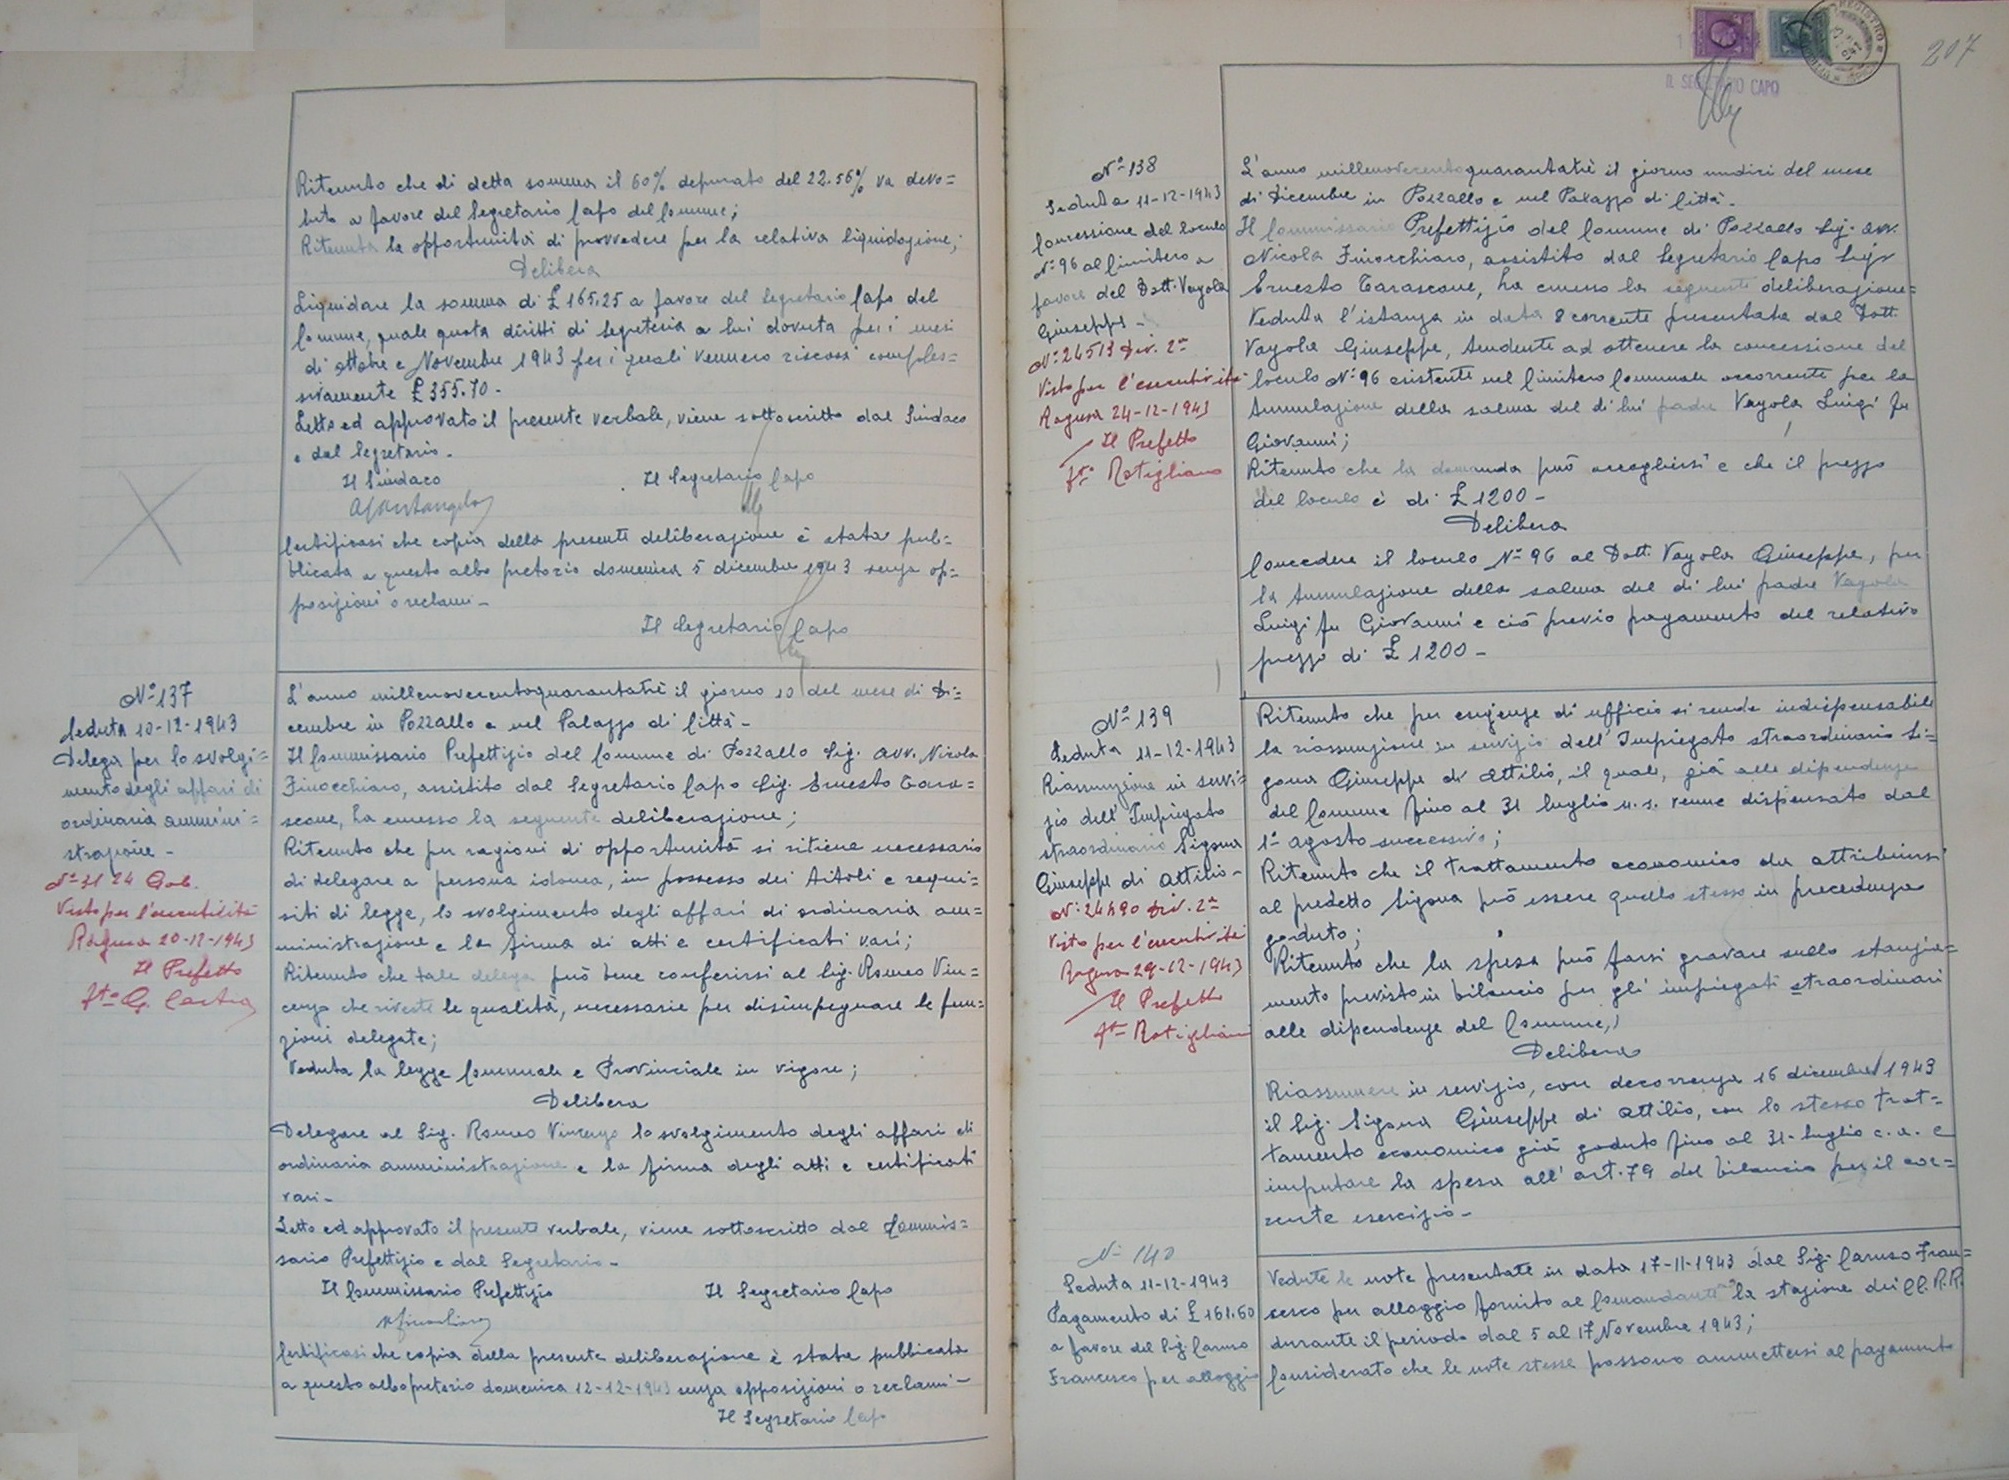 Ritenuto che di detta somma il 60% depurato del 22.56% va devo=
luto a favore del Segretario Capo del Comune;
Ritenuta la opportunità di provvedere per la relativa liquidazione;
Delibera
Liquidare la somma di £ 165.25 a favore del Segretario Capo del
Comune, quale quota diritti di Segreteria a lui dovuta per i mesi
di ottobre e Novembre 1943 per i quali vennero riscossi comples=
sivamente £ 355.70.-
Letto ed approvato il presente verbale, viene sottoscritto dal Sindaco
e dal Segretario.-
Il Sindaco Il Segretario Capo
Certificasi che copia della presente deliberazione è stata pub=
blicata a questo albo pretorio domenica 5 dicembre 1943 senza op=
posizioni o reclami.-
Il Segretario Capo
Nº 137
Seduta 10-12-1943
Delega per lo svolgi=
mento degli affari di
ordinaria ammini=
strazione -
Nº 3124 Gab.
Visto per l'esecutibilità
Ragusa 20-12-1943
Il Prefetto
fto G.
L'anno millenovecentoquarantatrè il giorno 10 del mese di Di=
cembre in Pozzallo e nel Palazzo di Città -
Il Commissario Prefettizio del Comune di Pozzallo Sig. avv. Nicola
Finocchiaro, assistito dal Segretario Capo Sig. Ernesto Tara=
scone, ha emesso la seguente deliberazione;
Ritenuto che per ragioni di opportunità si ritiene necessario
di delegare a persona idonea, in possesso dei titoli e requi=
siti di legge, lo svolgimento degli affari di ordinaria am=
ministrazione e la firma di atti e certificati vari;
Ritenuto che tale delega può bene conferirsi al Sig. Romeo Vin=
cenzo che riveste le qualità, necessarie per disimpegnare le fun=
zioni delegate;
Veduta la legge Comunale e Provinciale in vigore;
Delibera
Delegare al Sig. Romeo Vincenzo lo svolgimento degli affari di
ordinaria amministrazione e la firma degli atti e certificati
vari -
Letto ed approvato il presente verbale, viene sottoscritto dal Commis=
sario Prefettizio e dal Segretario -
Il Commissario Prefettizio Il Segretario Capo
Certificasi che copia della presente deliberazione è stata pubblicata
a questo albo pretorio domenica 12-12-1943 senza opposizioni o reclami -
Il Segretario Capo
207
IL SEGRETARIO CAPO
Nº 138
Seduta 11-12-1943
Concessione del loculo
Nº 96 al Cimitero a
favore del Dott. Vayola
Giuseppe -
Nº 24513 Div. 2ª
Visto per l'esecutività
Ragusa 24-12-1943
Il Prefetto
fto Rotigliano
L'anno millenovecentoquarantatrè il giorno undici del mese
di Dicembre in Pozzallo e nel Palazzo di Città -
Il Commissario Prefettizio del Comune di Pozzallo Sig. avv.
Nicola Finocchiaro, assistito dal Segretario Capo Sig.
Ernesto Tarascone, ha emesso la seguente deliberazione=
Veduta l'istanza in data 8 corrente presentata dal Dott.
Vayola Giuseppe, tendente ad ottenere la concessione del
loculo Nº 96 esistente nel Cimitero Comunale occorrente per la
tumulazione della salma del di lui padre Vayola Luigi fu
Giovanni;
Ritenuto che la domanda può accogliersi e che il prezzo
del loculo è di £ 1200 -
Delibera
Concedere il loculo Nº 96 al Dott. Vayola Giuseppe, per
la tumulazione della salma del di lui padre Vayola
Luigi fu Giovanni e ciò previo pagamento del relativo
prezzo di £ 1200 -
Nº 139
Seduta 11-12-1943
Riassunzione in servi=
zio dell'Impiegato
straordinario Sigona
Giuseppe di Attilio -
Nº 24490 Div. 2ª
Visto per l'esecutività
Ragusa 29-12-1943
Il Prefetto
fto Rotigliano
Ritenuto che per esigenze di ufficio si rende indispensabile
la riassunzione in servizio dell'Impiegato straordinario Si=
gona Giuseppe di Attilio, il quale, già alle dipendenze
del Comune fino al 31 luglio u.s. venne dispensato dal
1º agosto successivo;
Ritenuto che il trattamento economico da attribuirsi
al predetto Sigona può essere quello stesso in precedenza
goduto;
Ritenuto che la spesa può farsi gravare sullo stanzia=
mento previsto in bilancio per gli impiegati straordinari
alle dipendenze del Comune;
Delibera
Riassumere in servizio, con decorrenza 16 dicembre 1943
il Sig. Sigona Giuseppe di Attilio, con lo stesso trat=
tamento economico già goduto fino al 31 luglio c.a. e
imputare la spesa all'art. 79 del bilancio per il cor=
rente esercizio -
Nº 140
Seduta 11-12-1943
Pagamento di £ 161.60
a favore del Sig. Caruso
Francesco per alloggio
Vedute le note presentate in data 17-11-1943 dal Sig. Caruso Fran=
cesco per alloggio fornito al Comandante la stazione dei CC.RR.
durante il periodo dal 5 al 17 Novembre 1943;
Considerato che le note stesse possono ammettersi al pagamento